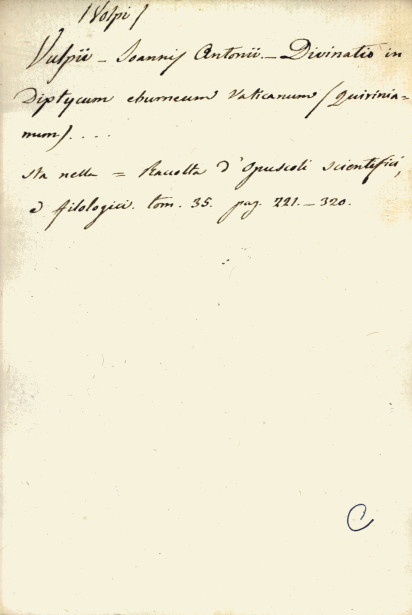 (Volpi)
Vulpii – Joannis Antonii. – Divinatio in
Diptycum eburneum Vaticanum (Quirinia=
num) . . . .
sta nella = Raccolta d'Opuscoli scientifici,
e filologici. tom. 35. pag. 221. – 320.
C